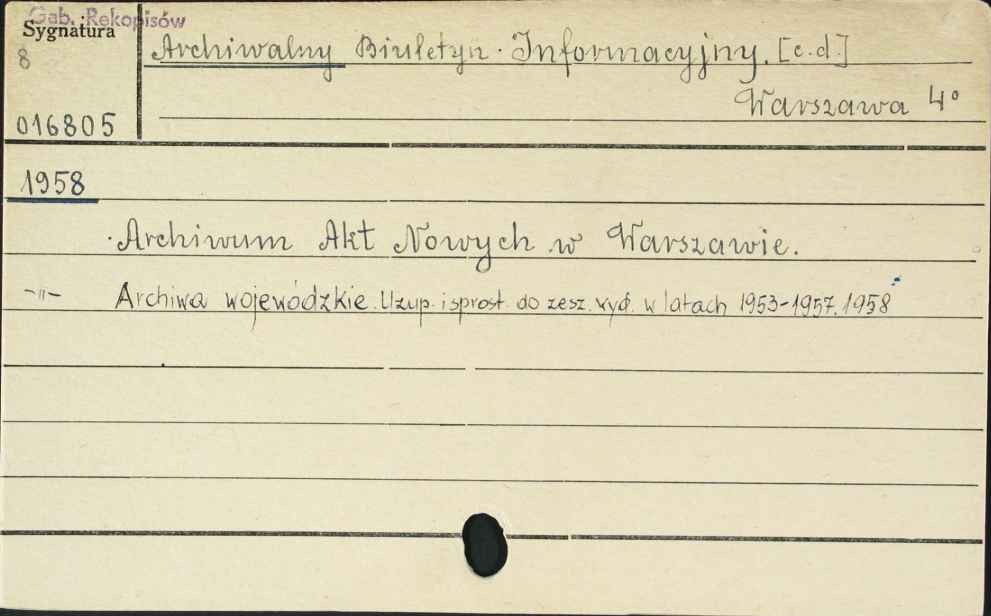 Gab. Rękopisów
Sygnatura
8
Archiwalny Biuletyn Informacyjny. [c.d.]
Warszawa 4°
016805
1958
Archiwum Akt Nowych w Warszawie.
-"- Archiwa wojewódzkie. Uzup. i sprost. do zesz. wyd. w latach 1953-1957. 1958